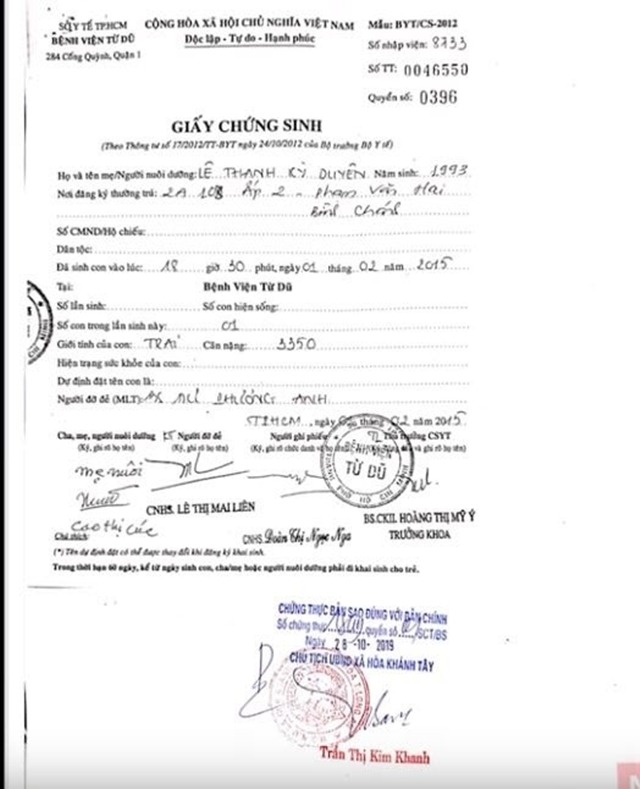 SỞ Y TẾ TP.HCM
BỆNH VIỆN TỪ DŨ
284 Cống Quỳnh, Quận 1
CỘNG HÒA XÃ HỘI CHỦ NGHĨA VIỆT NAM
Độc lập - Tự do - Hạnh phúc
Mẫu: BYT/CS-2012
Số nhập viện: 8733
Số TT: 0046550
Quyển số: 0396
GIẤY CHỨNG SINH
(Theo Thông tư số 17/2012/TT-BYT ngày 24/10/2012 của Bộ trưởng Bộ Y tế)
Họ và tên mẹ/Người nuôi dưỡng: LÊ THANH KỲ DUYÊN Năm sinh: 1993
Nơi đăng ký thường trú: 2A 108 Ấp 2 - Phạm Văn Hai
Bình Chánh
Số CMND/Hộ chiếu:
Dân tộc:
Đã sinh con vào lúc: 18 giờ 30 phút, ngày 01 tháng 02 năm 2015
Tại: Bệnh Viện Từ Dũ
Số lần sinh: Số con hiện sống:
Số con trong lần sinh này: 01
Giới tính của con: TRAI Cân nặng: 3350
Hiện trạng sức khỏe của con:
Dự định đặt tên con là:
Người đỡ đẻ (MLT): PHƯƠNG ANH
TPHCM, ngày tháng 02 năm 2015
Cha, mẹ, người nuôi dưỡng Người đỡ đẻ Người ghi phiếu Thủ trưởng CSYT
(Ký, ghi rõ họ tên) (Ký, ghi rõ họ tên) (Ký, ghi rõ chức danh
BỆNH VIỆN
TỪ DŨ
mẹ nuôi
CNHS. LÊ THỊ MAI LIÊN
BS.CKII. HOÀNG THỊ MỸ Ý
Cao Thị Cúc
CNHS. Đoàn Thị Ngọc Nga
TRƯỞNG KHOA
Ghi chú:
(*) Tên dự định đặt có thể được thay đổi khi đăng ký khai sinh.
Trong thời hạn 60 ngày, kể từ ngày sinh con, cha/mẹ hoặc người nuôi dưỡng phải đi khai sinh cho trẻ.
CHỨNG THỰC BẢN SAO ĐÚNG VỚI BẢN CHÍNH
Số chứng thực quyển số SCT/BS
Ngày 28 -10- 2019
CHỦ TỊCH UBND XÃ HÒA KHÁNH TÂY
Trần Thị Kim Khanh